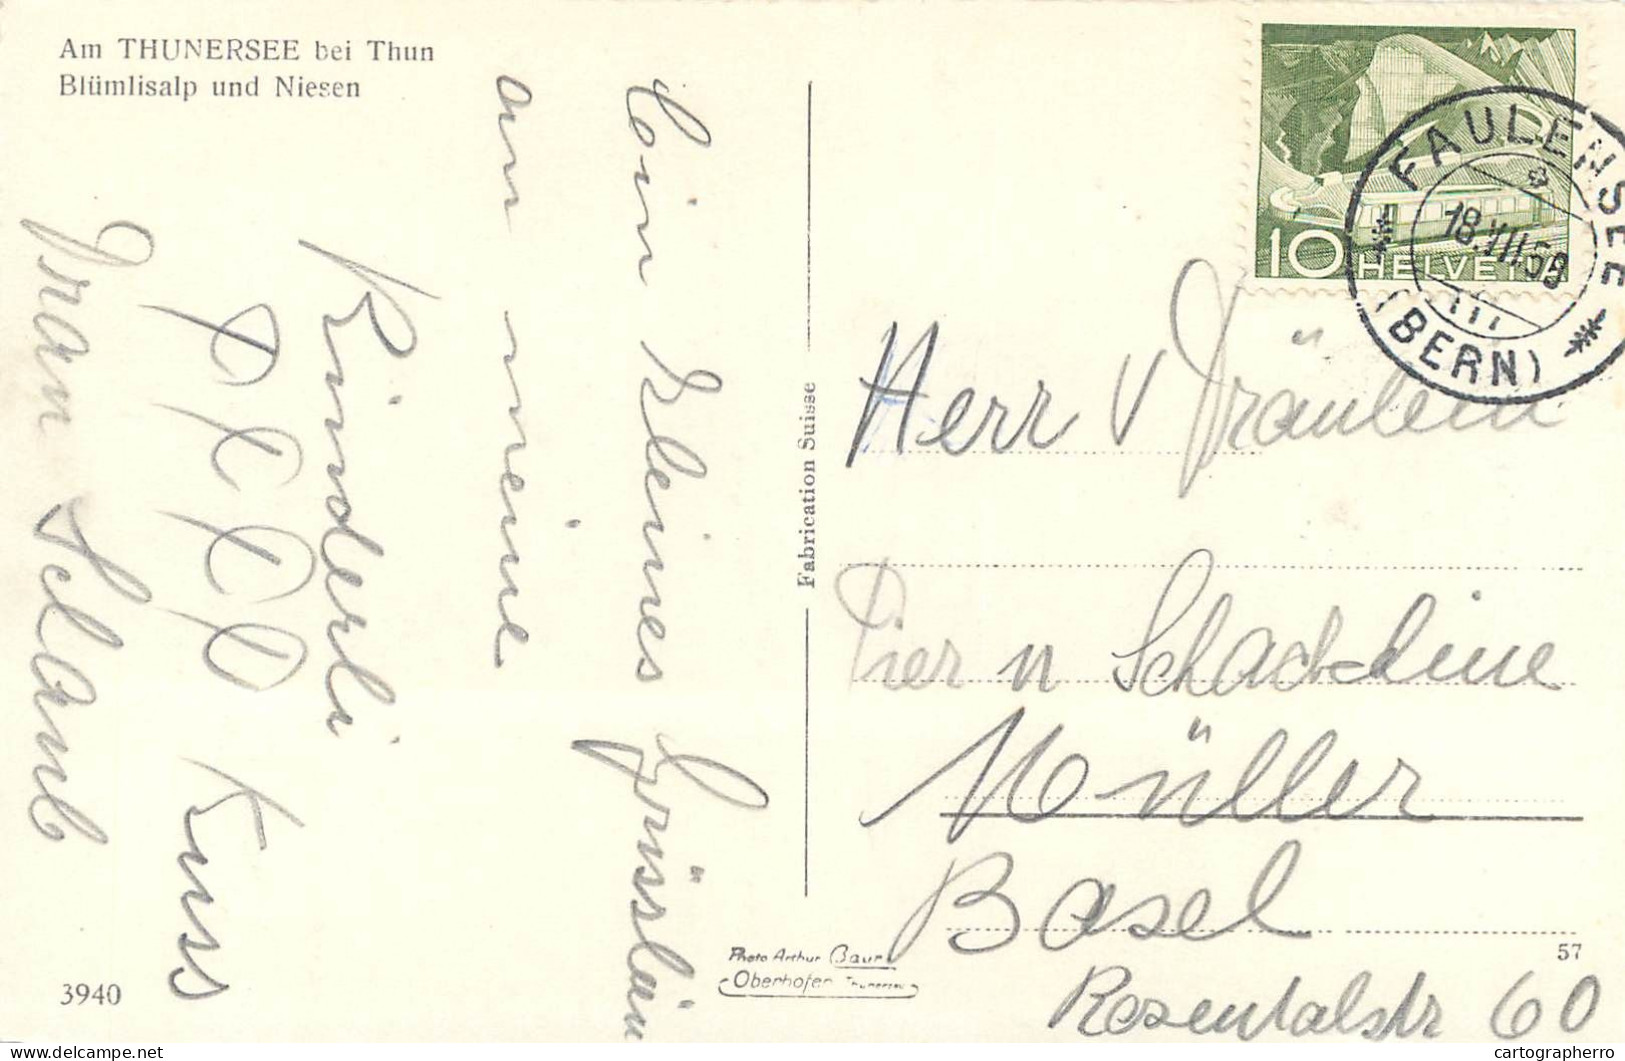 Am THUNERSEE bei Thun
Blümlisalp und Niesen
Ein kleines Grüsslein
an meine
Kinderli
Kuss
3940
Fabrication Suisse
Photo Arthur Baur
Oberhofen Thunersee
10 HELVETIA
FAULENSEE
(BERN)
Herr v Fräulein
Pier n
Müller
Basel
Rosentalstr 60
57
www.delcampe.net
cartographerro